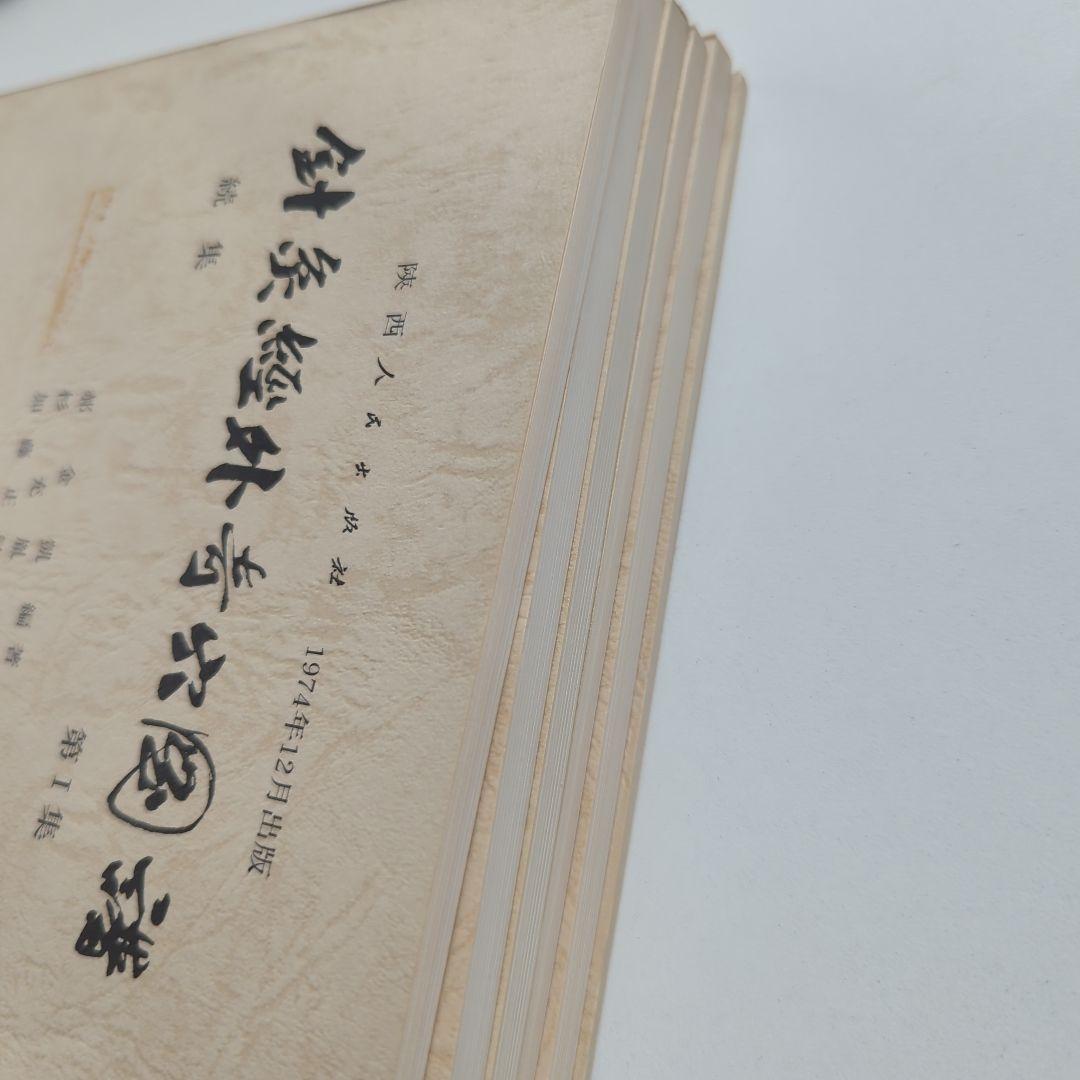 陕西人民出版社 1974年12月出版
針灸經外奇穴圖譜
続集 第I集
郝金凱編著